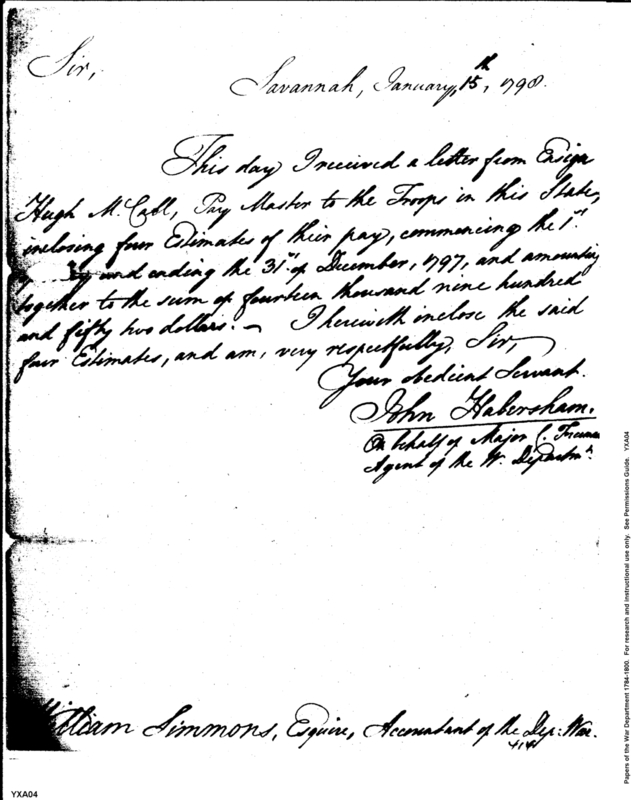 Sir,
Savannah, January, 15th, 1798.
This day I received a letter from Ensign
Hugh McCall, Pay Master to the Troops in this State,
inclosing four Estimates of their pay, commencing the 1st.
and ending the 31st of December, 1797, and amounting
together to the sum of fourteen thousand nine hundred
and fifty two dollars. — I herewith inclose the said
four Estimates, and am, very respectfully, Sir,
Your obedient Servant.
John Habersham.
On behalf of Major C. Freeman
Agent of the W. Departmt.
William Simmons, Esquire, Accountant of the Dep: War.
Papers of the War Department 1784-1800. For research and instructional use only. See Permissions Guide. YXA04
YXA04